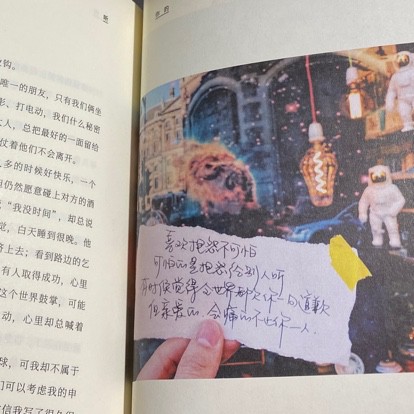 钩。
唯一的朋友，只有我们俩坐
影、打电动，我们什么秘密
大人，总把最好的一面留给
仗着他们不会离开。
人多的时候好快乐，一个
但仍然愿意碰上对方的酒
“我没时间”，却总说
觉，白天睡到很晚。他
挤上去；看到路边的乞
有人取得成功，心里
这个世界鼓掌，可能
动，心里却总喊着
球，可我却不属于
们可以考虑我的申
信我写了很久很
喜欢抱怨不可怕
可怕的是抱怨给别人听
有时候觉得全世界都欠你一句道歉
但亲爱的，会痛的不止你一人.